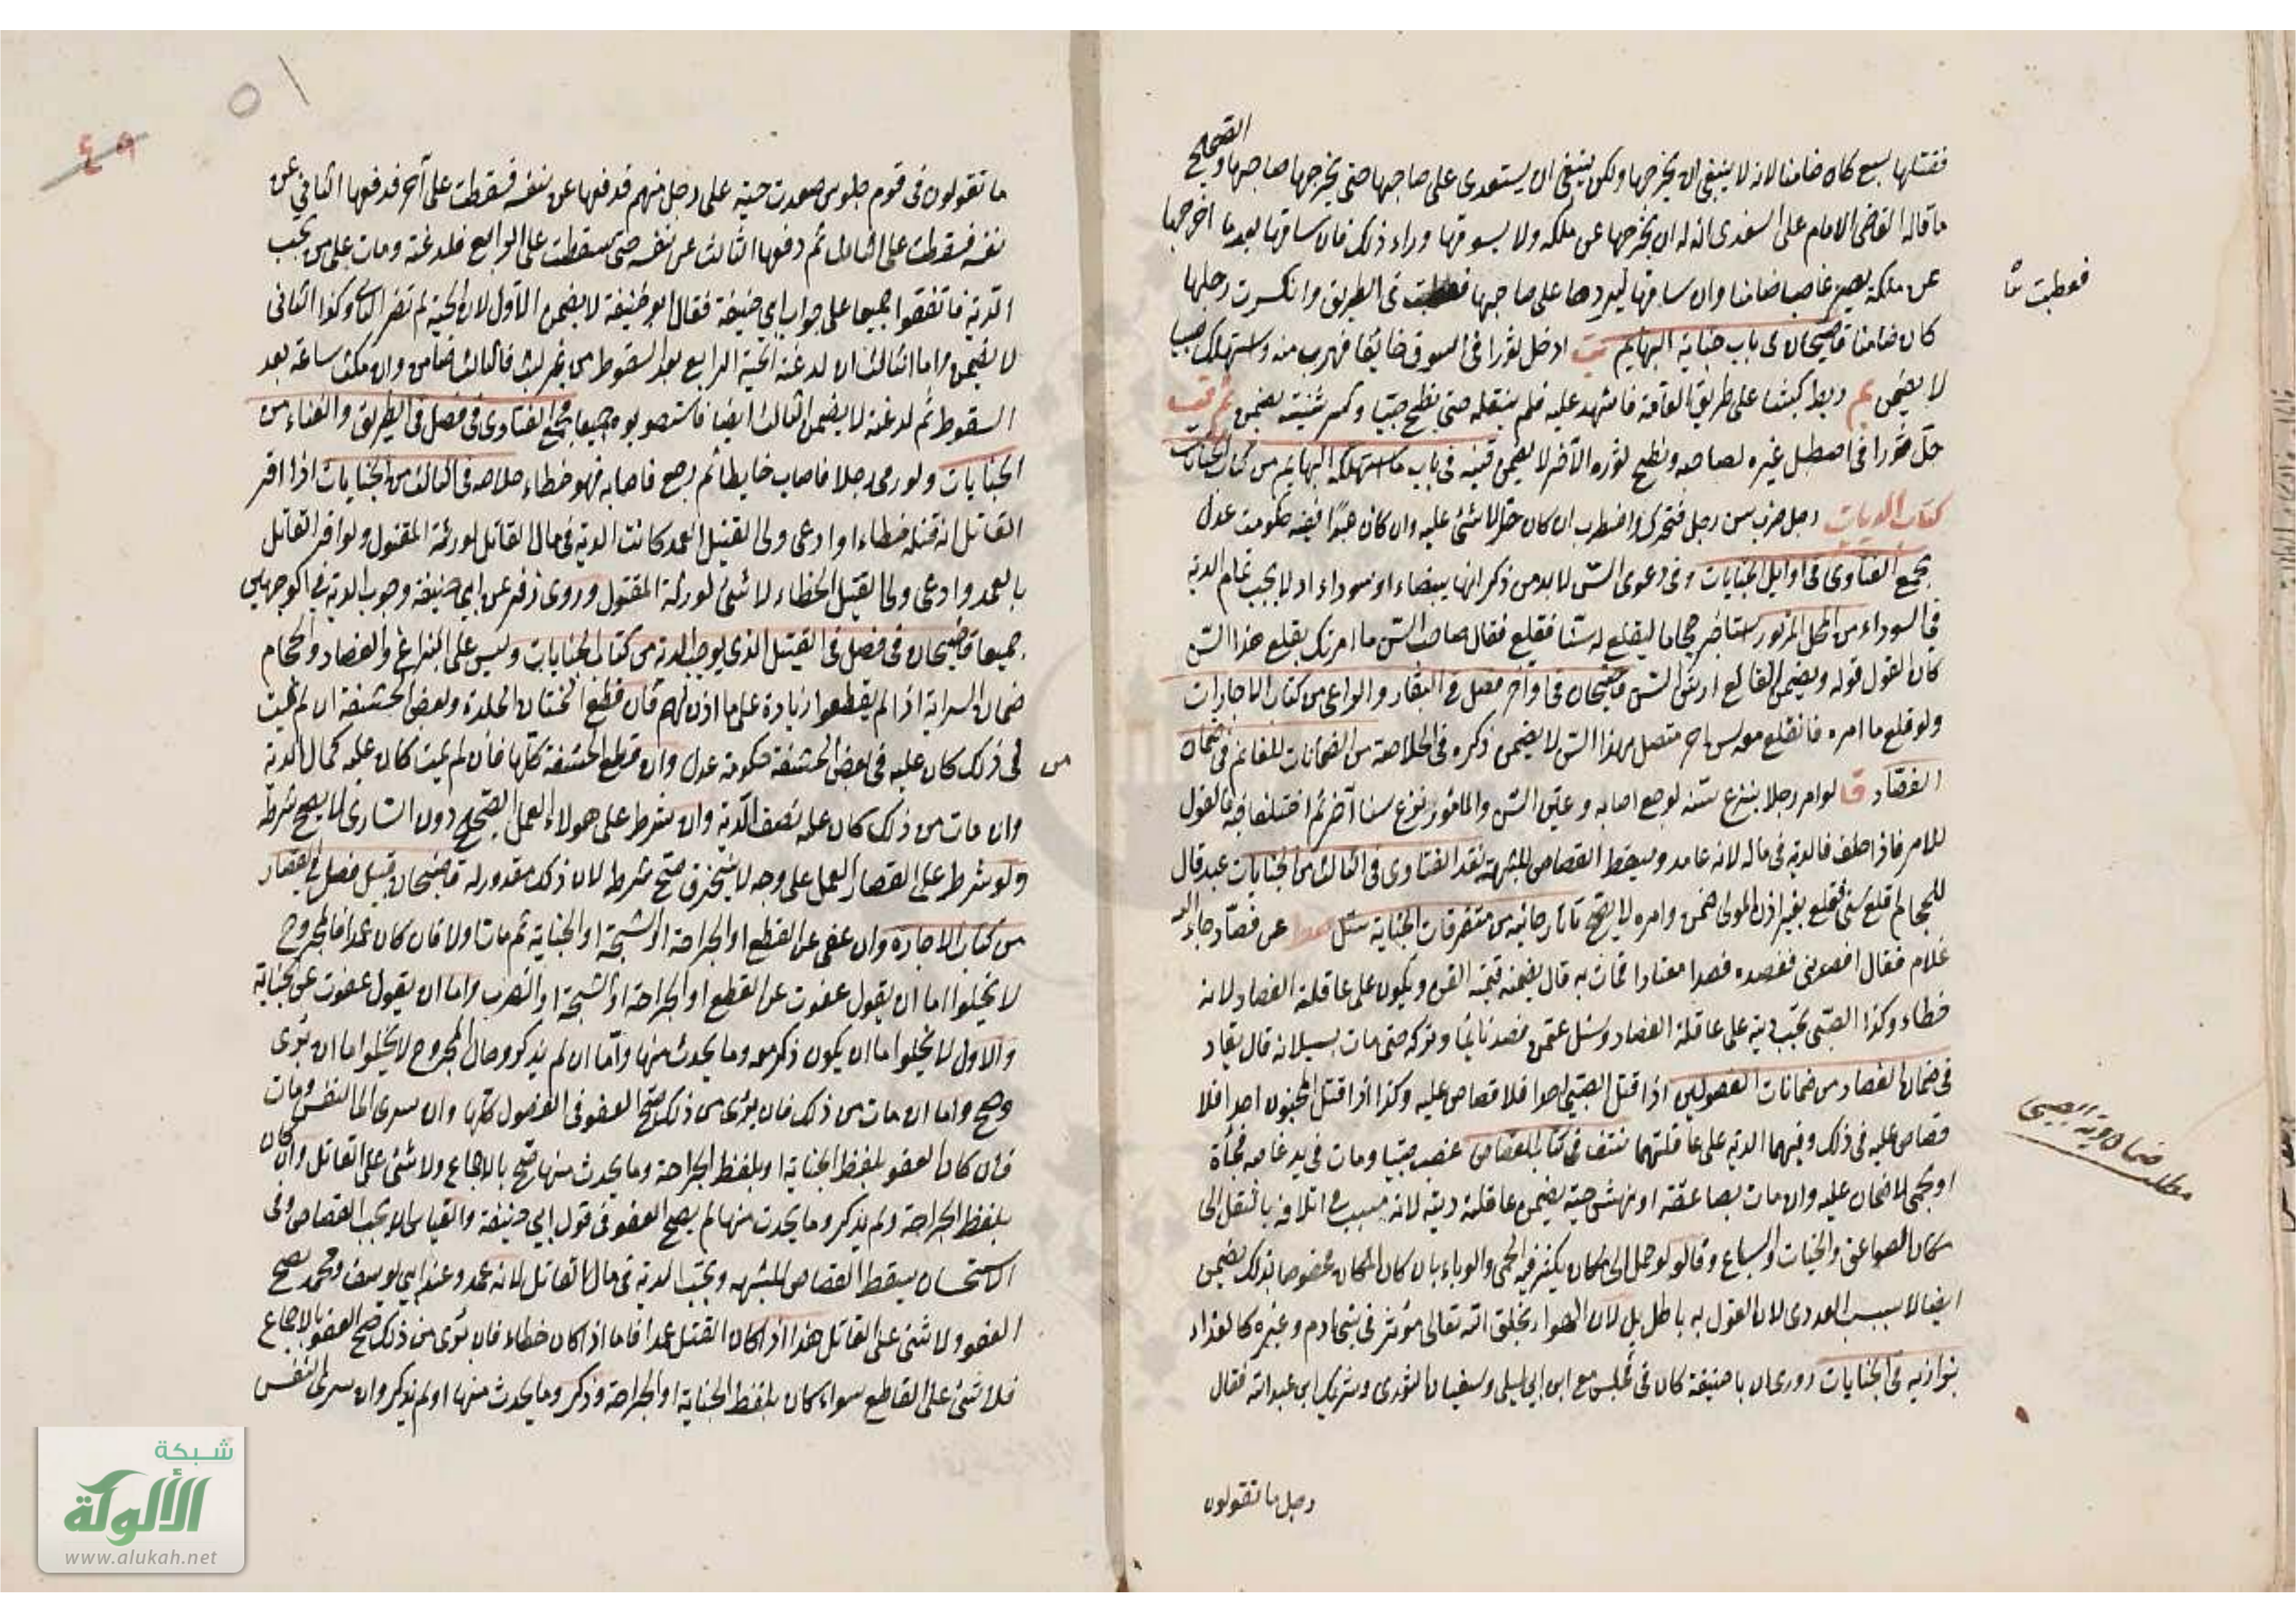 فقتلها سبع كان ضامنا لانه لا ينبغي ان يخرجها ولكن ينبغي ان يستعدى على صاحبها حتى يخرجها صاحبها والصحيح
ما قاله القاضي الامام على السغدى انه له ان يخرجها عن ملكه ولا يسوقها وراء ذلك فان ساقها بعد ما اخرجها
عن ملكه يصير غاصبا ضامنا وان ساقها ليردها على صاحبها فعطبت في الطريق وانكسرت رجلها
فعطبت
كان ضامنا قاضيخان في باب جناية البهائم ادخل ثورا في السوق خائفا فهرب منه واستهلك صبيا
لا يضمن ربط كبشا على طريق العامة فاشهد عليه فلم ينقله حتى نطح صبيا وكسر ثنيته يضمن
ثورا في اصطبل غيره ونطح ثوره الآخر لا يضمن قنيه في باب ما استهلكه البهايم من كتاب الجنايات
كتاب الديات رجل ضرب سن رجل فتحرك واضطرب ان كان حرا لا شئ عليه وان كان عبدا ففيه حكومت عدل
مجمع الفتاوى في اوايل الجنايات وفي دعوى السن لا بد من ذكر انها بيضاء او سوداء اذ لا يجب تمام الدية
في السوداء من المحل المزبور استأجر حجاما ليقلع له سنا فقلع فقال صاحب السن ما امرتك بقلع هذا السن
كان القول قوله ويضمن القالع ارش السن قاضيخان في اواخر فصل في البقار والراعى من كتاب الاجارات
ولو قلع ما امره فانقلع معه سن اخر متصل بهذا السن لا يضمن ذكره في الخلاصة من الضمانات للغانم في ضمان
الفصاد لو امر رجلا بنزع سنه لوجع اصابه وعين السن والمأمور نزع سنا آخر ثم اختلفا فيه فالقول
للامر فاذا حلف فالدية في ماله لانه عامد وسقط القصاص للشبهة نقد الفتاوى في الثالث من الجنايات عبد قال
للحجام اقلع سني فقلع بغير اذن المولى ضمن وامره لا يصح تاتارخانيه من متفرقات الجناية سئل عن فصاد جاء اليه
غلام فقال افصدني ففصده فصدا معتادا فمات به قال يضمن قيمة القن ويكون على عاقلة الفصاد لانه
خطاء وكذا الصبي تجب ديته على عاقلة الفصاد وسئل عمن فصد نائما وتركه حتى مات بسيلانه قال يقاد
في ضمان الفصاد من ضمانات الفصولين اذا قتل الصبي احدا فلا قصاص عليه وكذا اذا قتل المجنون احدا فلا
قصاص عليه في ذلك وفيهما الدية على عاقلتهما نتف في كتاب القصاص غصب صبيا ومات في يد غاصبه فجأة
مطلب ضمان دية الصبي
او بحمى لا ضمان عليه وان مات بصاعقة او نهش حية يضمن عاقلته ديته لانه مسبب في اتلافه بالنقل الى
مكان الصواعق والحيات والسباع وقالو لو حمل الى مكان يكثر فيه الحمى والوباء بان كان المكان مخصوصا بذلك يضمن
ايضا لا بسبب العدوى لان القول به باطل بل لان الهواء بخلق الله تعالى مؤثر في بني ادم وغيره كالغذاء
بزازيه في الجنايات روى ان ابا حنيفة كان في مجلس مع ابن ابي ليلى وسفيان الثورى وشريك ابن عبد الله فقال
رجل ما تقولون
٥١
٤٩
ما تقولون في قوم جلوس صعدت حية على رجل منهم فدفعها عن نفسه فسقطت على آخر فدفعها الثاني عن
نفسه فسقطت على الثالث ثم دفعها الثالث عن نفسه حتى سقطت على الرابع فلدغته ومات على من تجب
الدية فاتفقوا جميعا على جواب ابي حنيفة فقال ابو حنيفة لا يضمن الاول لان الحية لم تضر الثاني وكذا الثاني
لا يضمن واما الثالث ان لدغته الحية الرابع بعد السقوط من غير لبث فالثالث ضامن وان مكث ساعة بعد
السقوط ثم لدغته لا يضمن الثالث ايضا فاستصوبوه جميعا مجمع الفتاوى في فصل في الطريق والفناء من
الجنايات ولو رمى رجلا فاصاب حايطا ثم رجع فاصابه فهو خطاء خلاصه في الثالث من الجنايات اذا اقر
القاتل انه قتله خطاء وادعى ولي القتيل العمد كانت الدية في مال القاتل لورثة المقتول ولو اقر القاتل
بالعمد وادعى ولي القتيل الخطاء لا شئ لورثة المقتول وروى زفر عن ابي حنيفة وجوب الدية في الوجهين
جميعا قاضيخان في فصل في القتيل الذي يوجب الدية من كتاب الجنايات وليس على البزاغ والفصاد والحجام
ضمان السراية اذا لم يقطعوا زيادة على ما اذن لهم فان قطع الختان الجلدة وبعض الحشفة ان لم يمت
في ذلك كان عليه في بعض الحشفة حكومة عدل وان قطع الحشفة كلها فان لم يمت كان عليه كمال الدية
من
وان مات من ذلك كان عليه نصف الدية وان شرط على هولاء العمل الصحيح دون السارى لا يصح شرطه
ولو شرط على القصار العمل على وجه لا ينخرق صح شرطه لان ذلك مقدور له قاضيخان قبيل فصل في القصار
من كتاب الاجارة وان عفى عن القطع او الجراحة او الشجة او الجناية ثم مات اولا فان كان عمدا فالمجروح
لا يخلوا اما ان يقول عفوت عن القطع او الجراحة او الشجة او الضرب واما ان يقول عفوت عن الجناية
والاول لا يخلوا اما ان يكون ذكر معه وما يحدث منها واما ان لم يذكر وحال المجروح لا يخلوا اما ان برئ
وصح واما ان مات من ذلك فان برئ من ذلك صح العفو في الفصول كلها وان سرى الى النفس ومات
فان كان العفو بلفظ الجناية او بلفظ الجراحة وما يحدث منها صح بالاجماع ولا شئ على القاتل وان كان
بلفظ الجراحة ولم يذكر وما يحدث منها لم يصح العفو في قول ابي حنيفة والقياس ان يجب القصاص وفي
الاستحسان يسقط القصاص للشبهه وتجب الدية في مال القاتل لانه عمد وعند ابي يوسف ومحمد يصح
العفو ولا شئ على القاتل هذا اذا كان القتل عمدا فاما اذا كان خطاء فان برئ من ذلك صح العفو بالاجماع
فلا شئ على القاطع سواء كان بلفظ الجناية او الجراحة وذكر وما يحدث منها او لم يذكر وان سرى الى النفس
شبكة
الألوكة
www.alukah.net